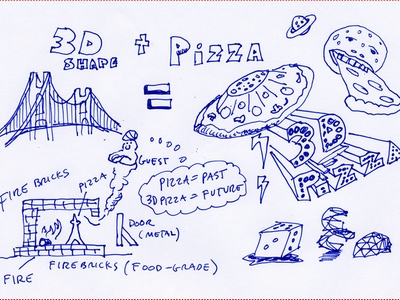 3D + PIZZA
SHAPE
=
GUEST
PIZZA = PAST
3D PIZZA = FUTURE
FIRE BRICKS
PIZZA
DOOR
(METAL)
FIREBRICKS (FOOD-GRADE)
FIRE